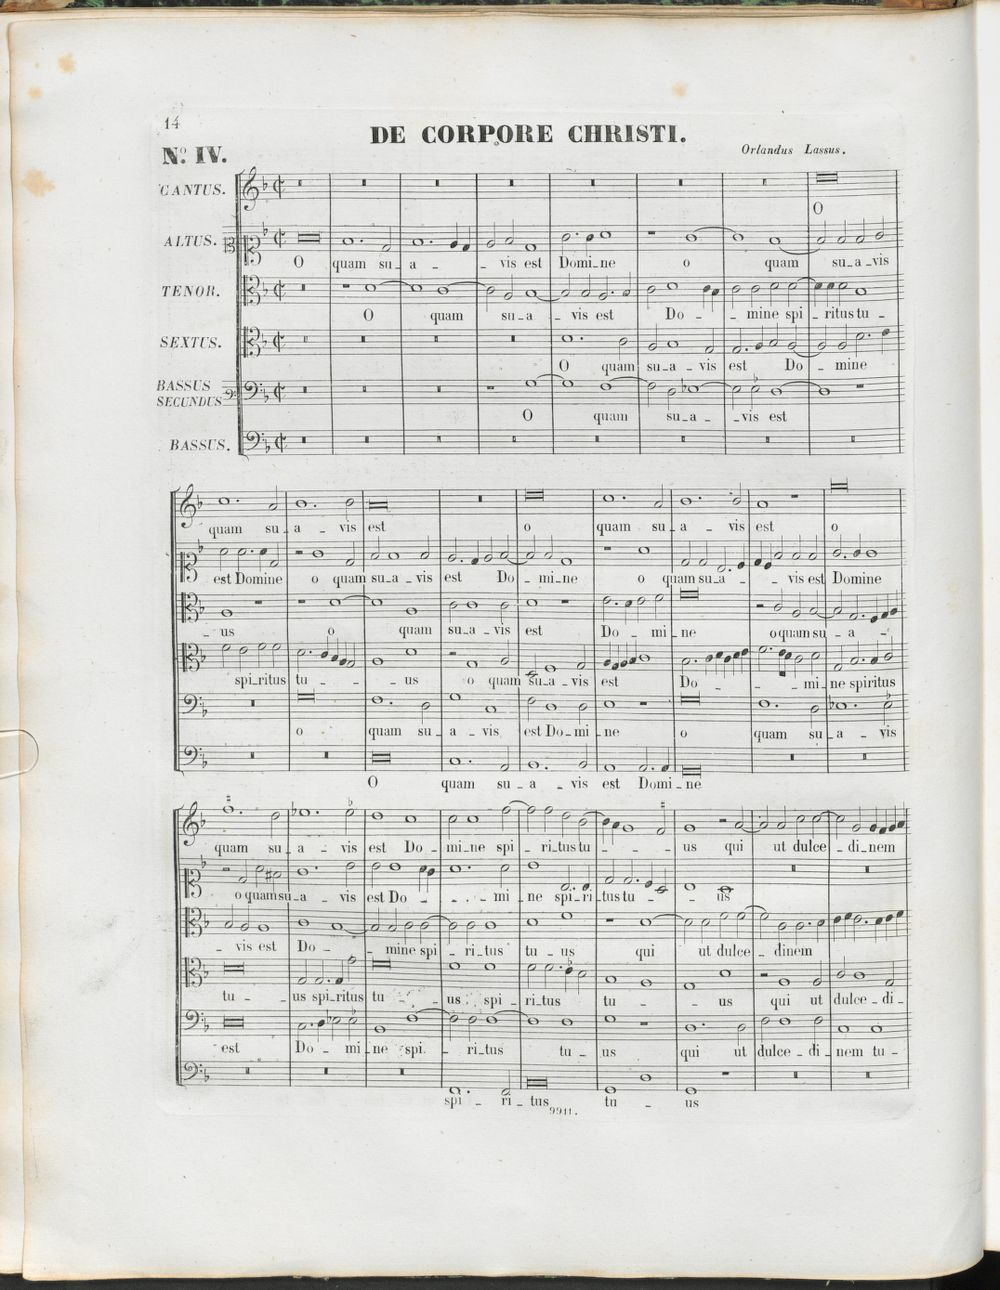 14
DE CORPORE CHRISTI.
Nº. IV.
Orlandus Lassus.
CANTUS.
O
ALTUS.
O quam su_a_ _vis est Domi_ne o quam su_a_vis
TENOR.
O quam su_a_ _vis est Do_ _mine spi_ritus tu_
SEXTUS.
O quam su_a_vis est Do_ _mine
BASSUS SECUNDUS
O quam su_a_ _vis est
BASSUS.
quam su_a_vis est o quam su_a_vis est o
est Domine o quam su_a_vis est Do_mi_ne o quam su_a_ _vis est Domine
_us o quam su_a_vis est Do_mi_ne o quam su_a_
spi_ritus tu_ _us o quam su_a_vis est Do_ _mi_ne spiritus
o quam su_a_vis est Do_mi_ne o quam su_a_vis
O quam su_a_vis est Domi_ne
quam su_a_vis est Do_mi_ne spi_ri_tus tu_ _us qui ut dulce_di_nem
o quam su_a_vis est Do_ _mi_ne spi_ri_tus tu_ _us
_vis est Do_ _mine spi_ri_tus tu_us qui ut dulce_dinem
tu_ _us spi_ritus tu_ _us spi_ri_tus tu_ _us qui ut dulce_di_
est Do_mi_ne spi_ri_tus tu_us qui ut dulce_di_nem tu_
spi_ri_tus tu_us
9911.